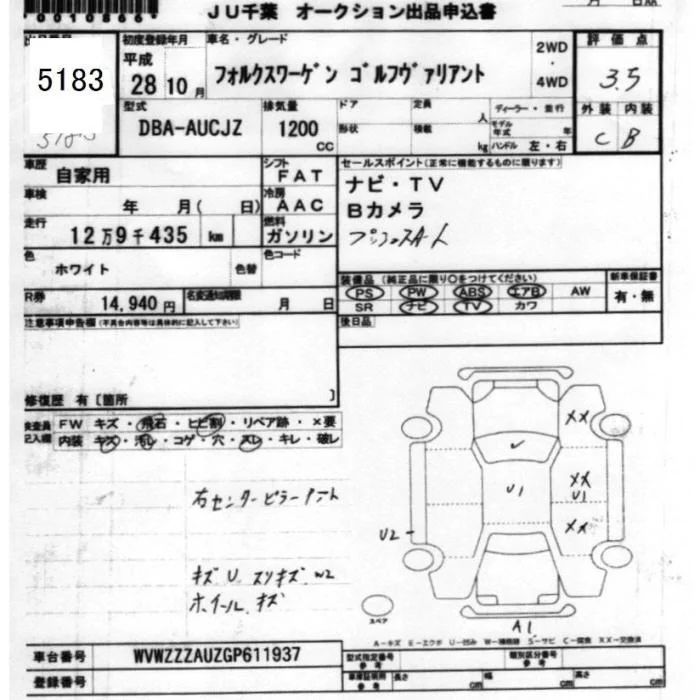 00108661
JU千葉 オークション出品申込書
5183
初度登録年月
平成
28 年 10 月
車名・グレード
フォルクスワーゲン ゴルフヴァリアント
2WD
・
4WD
評価点
3.5
外装 内装
C B
型式
DBA-AUCJZ
排気量
1200
CC
ドア
形状
定員
人
積載
kg
ディーラー・並行
モデル年式 年
ハンドル 左・右
車歴
自家用
シフト
FAT
車検
年 月( 日)
冷房
AAC
走行
12万9千435 km
燃料
ガソリン
色
ホワイト
色替
色コード
R券
14,940 円
名変通知期限
月 日
セールスポイント(正常に機能するものに限ります)
ナビ・TV
Bカメラ
プッシュスタート
装備品 (純正品に限り○をつけてください)
新車保証書
PS PW ABS エアB AW
有・無
SR ナビ TV カワ
後日品
注意事項申告欄(不具合内容等は具体的に記入して下さい)
修復歴 有〔箇所 〕
検査員記入欄
FW キズ・飛石・ヒビ割・リペア跡・×要
内装・キズ・汚レ・コゲ・穴・スレ・キレ・破レ
右センターピラーアート
キズ U スリキズ W2
ホイール キズ
XX
XX
U1
XX
U1
U2
A1
スペア
A-キズ E-エクボ U-凹み W-補修跡 S-サビ C-腐食 XX-交換済
車台番号
WVWZZZAUZGP611937
登録番号
型式指定番号
参考
類別区分番号
参考
車庫証明用
参考
長さ cm
幅 cm
高さ cm